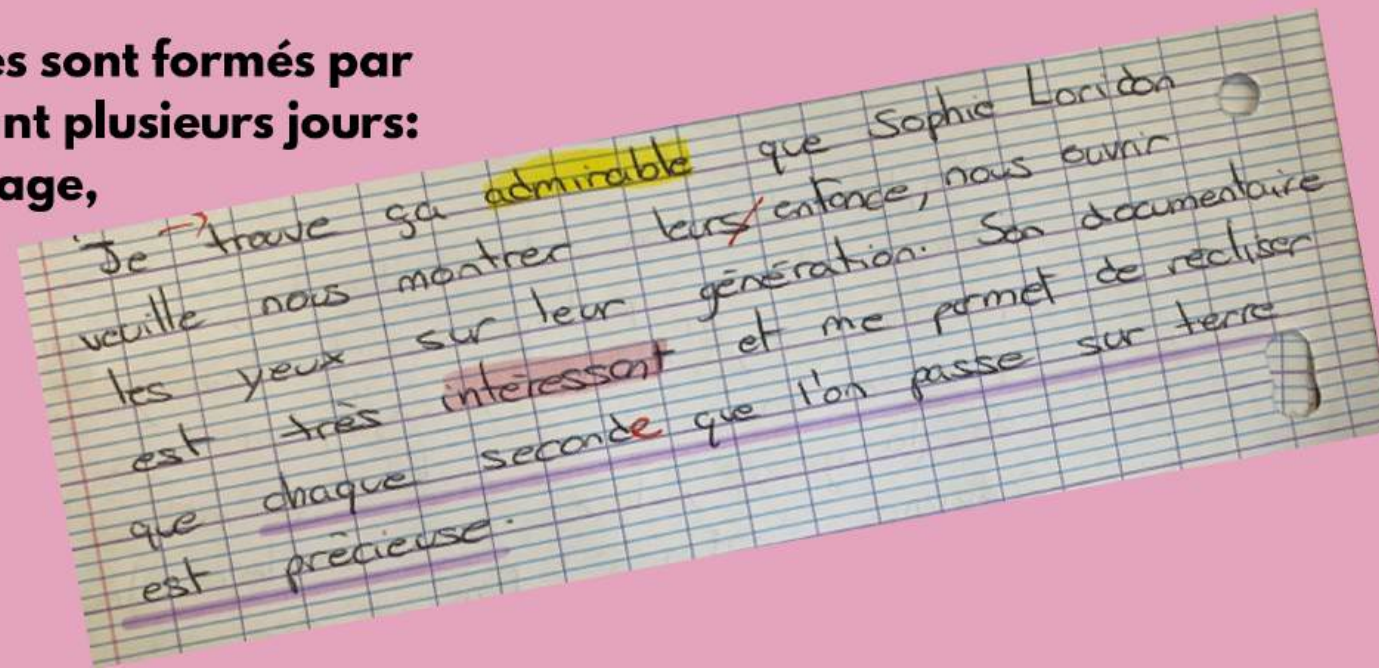 es sont formés par
nt plusieurs jours:
age,
Je trouve ça admirable que Sophie Loridon
veuille nous montrer leurs enfance, nous ouvrir
les yeux sur leur génération. Son documentaire
est très intéressant et me permet de realiser
que chaque seconde que l'on passe sur terre
est précieuse.